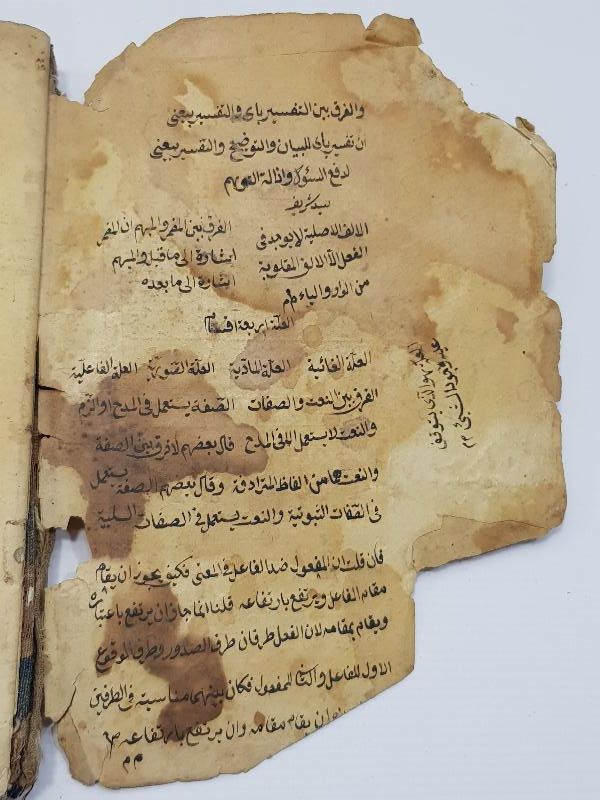 والفرق بين التفسير باى والتفسير بيعنى
ان تفسير باى للبيان والتوضيح والتفسير بيعنى
لدفع السئول واذالة التوهم
سيد شريف
الالف الاصلية لايوجد فى
الفعل الا الالف المقلوبة
من الواو والياء
الفرق بين المفسر والمبهم ان المفسر
اشارة الى ما قبل والمبهم
اشارة الى ما بعده
العلة اربعة اقسام
العلة الغائية العلة المادية العلة الصورية العلة الفاعلية
الفرق بين النعت والصفات الصفة يستعمل فى المدح او الذم
والنعت لا يستعمل الا فى المدح قال بعضهم لا فرق بين الصفة
والنعت من الفاظ المترادفة وقال بعضهم الصفة يستعمل
فى الصفات الثبوتية والنعت يستعمل فى الصفات السلبية
فان قلت ان المفعول ضد الفاعل فى المعنى فكيف يجوز ان يقام
مقام الفاعل ويرتفع بارتفاعه قلنا انما جاز ان يرتفع باعتباره
ويقام بمقامه لان الفعل طرفان طرف الصدور وطرف الوقوع
الاول للفاعل والثانى للمفعول فكان بينهما مناسبة فى الطرفين
ان يقام مقامه وان يرتفع بارتفاعه
العلة هو الذى يتوقف
عليه وجود الشئ